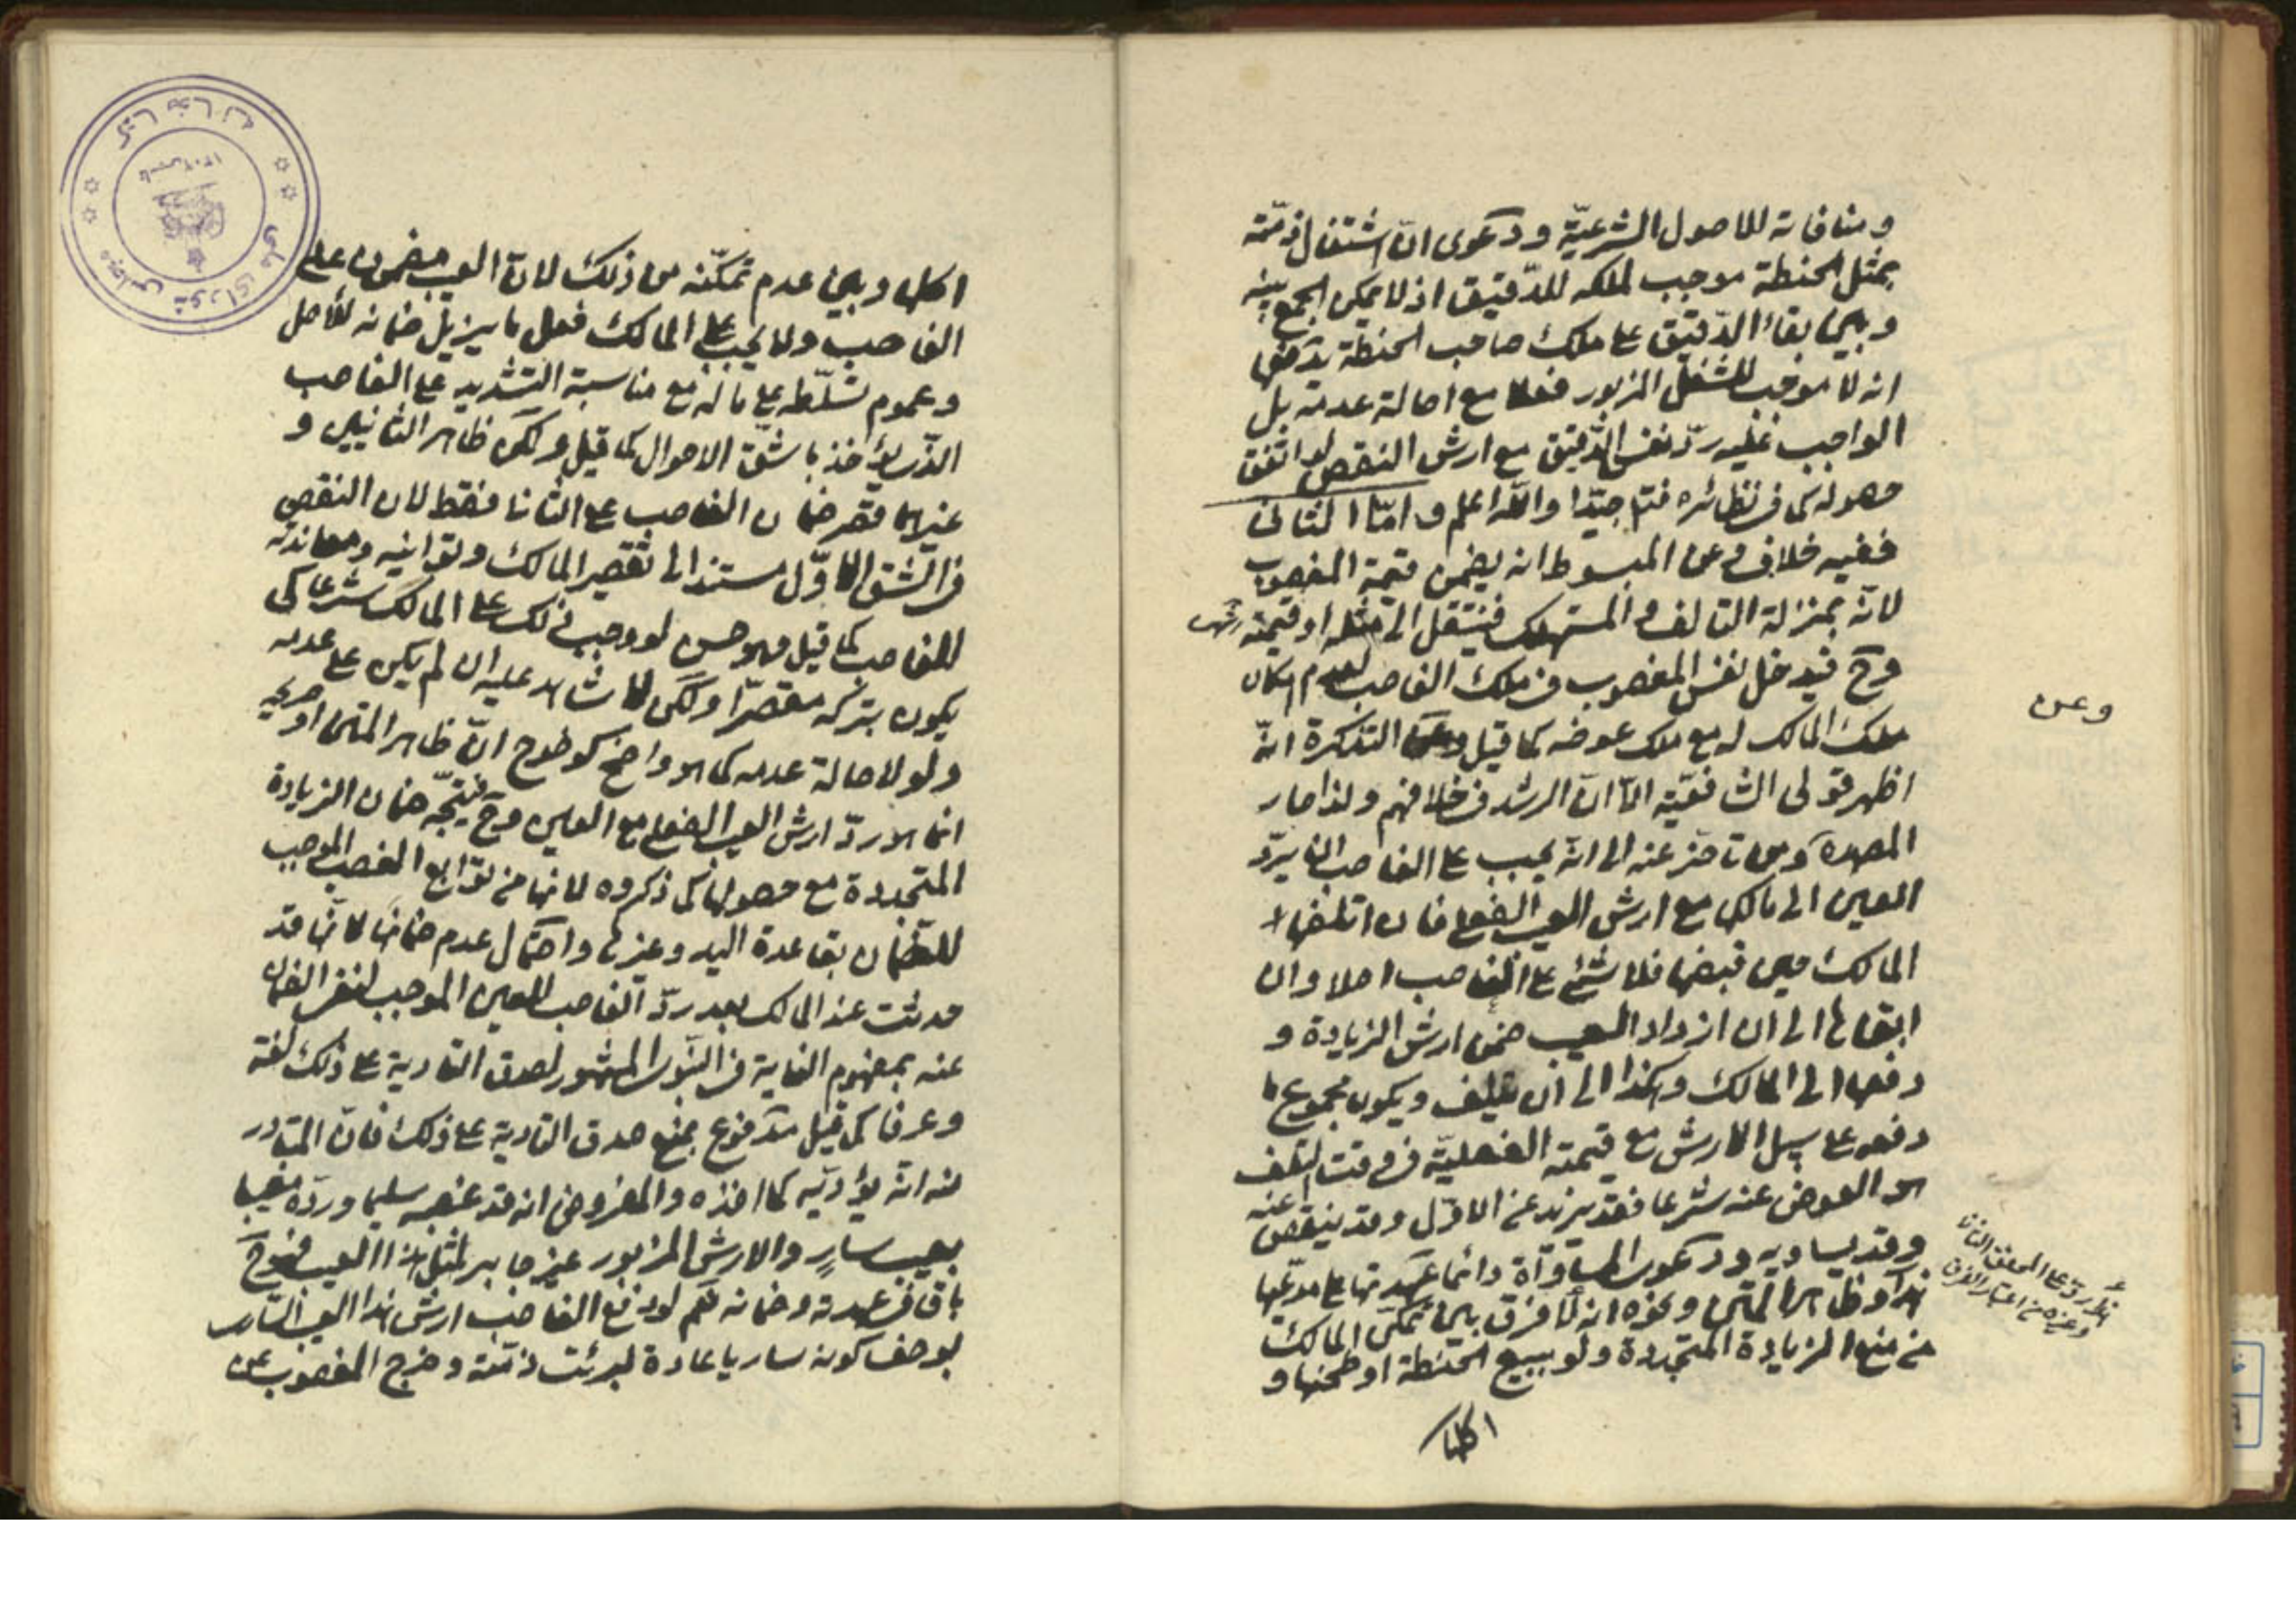 ومنافاته للاصول الشرعيّة ودعوى انّ اشتغال ذمّته
بمثل الحنطة موجب لملكه للدّقيق اذ لا يمكن الجمع بينه
وبين بقاء الدّقيق على ملك صاحب الحنطة يدفعها
انه لا موجب للشغل المزبور فعلا مع اصالة عدمه بل
الواجب عليه ردّ نفس الدّقيق مع ارش النقص لو اتفق
حصوله كما في نظائره فتامّل جيّدا والله اعلم وامّا الثاني
ففيه خلاف وعن المبسوط انه يضمن قيمة المغصوب
لانّه بمنزلة التالف والمستهلك فينتقل الى مثله او قيمته
وح فيدخل نفس المغصوب في ملك الغاصب لعدم امكان
ملك المالك له مع ملك عوضه كما قيل وعن التذكرة انّه
وعن
اظهر قولي الشافعيّة الّا انّ الرشد في خلافهم ولذا صار
المصره ومن تاخر عنه الى انّه يجب على الغاصب ان يردّ
العين الى مالكها مع ارش العيب الفعلي فان اتلفها
المالك حين قبضها فلا شيء على الغاصب اصلا وان
ابقاها الى ان ازداد العيب ضمن ارش الزيادة و
دفعها الى المالك وهكذا الى ان يتلف ويكون مجموع ما
دفعه على سبيل الارش مع قيمته الفعليّة في وقت التلف
هو العوض عنه شرعا فقد يزيد عن الاوّل وقد ينقص عنه
وقد يساويه ودعوى المساواة دائما عهدتها على مدّعيها
هذا وظاهر المتن ونحوه انه لا فرق بين تمكّن المالك
من منع الزيادة المتجددة ولو ببيع الحنطة او طحنها و
اكلها
اكلها وبين عدم تمكّنه من ذلك لانّ العيب مضمون على
الغاصب ولا يجب على المالك فعل ما يزيل ضمانه للاصل
وعموم تسلّطه على ماله مع مناسبة التشديد على الغاصب
الذي يؤاخذ باشقّ الاحوال كما قيل ولكن ظاهر الثانيين و
غيرهما قصر ضمان الغاصب على الثاني فقط لان النقص
في الشق الاوّل مستند الى تقصير المالك وتوانيه ومعاندته
للغاصب كما قيل وهو حسن لو وجب ذلك على المالك شرعا كي
يكون بتركه مقصّرا ولكن لا شاهد عليه ان لم يكن على عدمه
ولو لاصالة عدمه كما هو واضح كوضوح انّ ظاهر المتن او صريحه
انما هو ردّ ارش العيب الفعلي مع العين وح فيتّجه ضمان الزيادة
المتجددة مع حصولها كما ذكروه لانها من توابع الغصب الموجب
للضمان بقاعدة اليد وغيرها واحتمال عدم ضمانها لانّها قد
حدثت عند المالك بعد ردّ الغاصب للعين الموجب لنفي الضمان
عنه بمفهوم الغاية في النبوي المشهور لصدق التادية على ذلك لغة
وعرفا كما قيل مدفوع بمنع صدق التادية على ذلك فانّ المتبادر
منه انّه يؤدّيه كما اخذه والمفروض انه قد غصبه سليما وردّه معيبا
بعيب سارٍ والارش المزبور غير جابر لمثل هذا العيب فهو ح
باق في عهدته وضمانه نعم لو دفع الغاصب ارش هذا العيب الساري
بوصف كونه ساريا عادة لبرئت ذمّته وخرج المغصوب عن